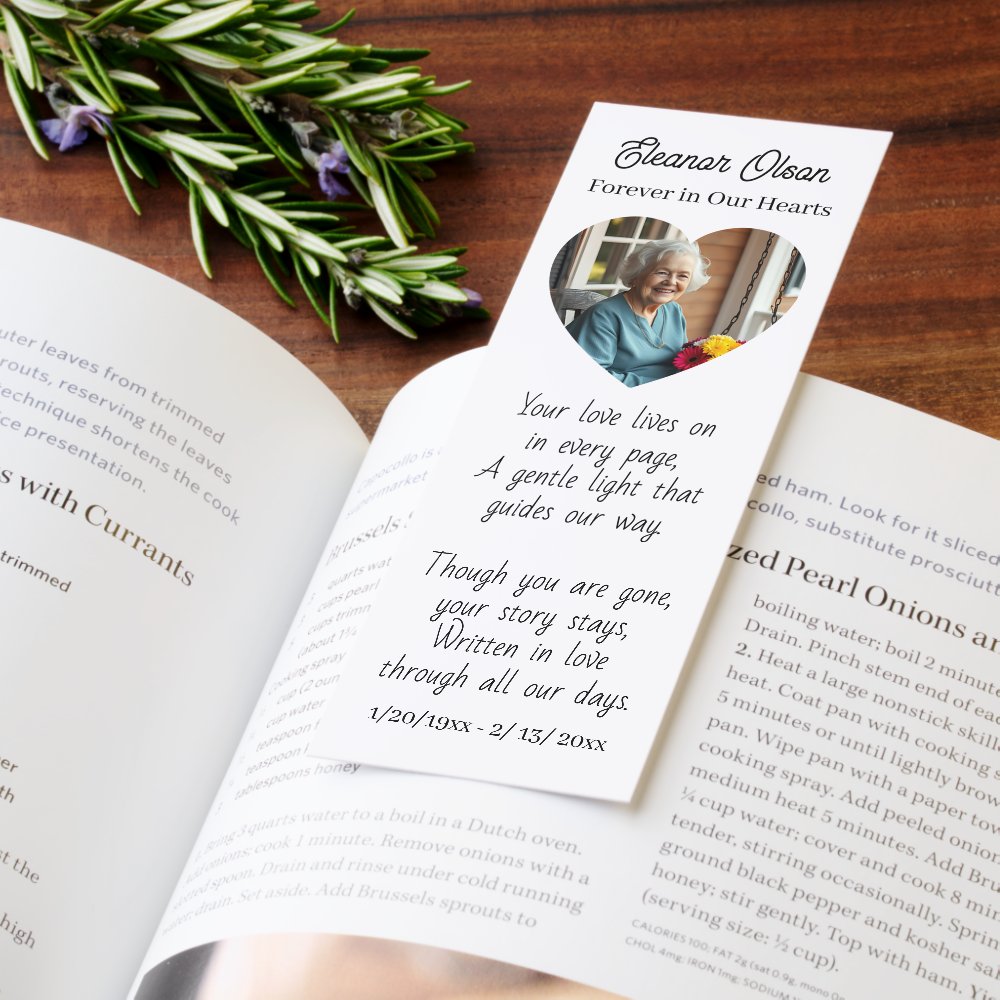 Eleanor Olson
Forever in Our Hearts
Your love lives on
in every page,
A gentle light that
guides our way.
Though you are gone,
your story stays,
Written in love
through all our days.
1/20/19xx - 2/ 13/ 20xx
uter leaves from trimmed
routs, reserving the leaves
technique shortens the cook
ice presentation.
s with Currants
trimmed
er
th
st the
high
Capocollo is a
supermarket
Brussels S
quarts wat
cups pearl
cups trimn
(about 1¾
Cooking spray
cup (2 oun
cup water
teaspoon f
teaspoon
tablespoons honey
1. Bring 3 quarts water to a boil in a Dutch oven.
Add onions; cook 1 minute. Remove onions with a
slotted spoon. Drain and rinse under cold running
water; drain. Set aside. Add Brussels sprouts to
ed ham. Look for it sliced
collo, substitute prosciutt
zed Pearl Onions an
boiling water; boil 2 minute
Drain. Pinch stem end of eac
2. Heat a large nonstick skille
heat. Coat pan with cooking s
5 minutes or until lightly brow
pan. Wipe pan with a paper tow
cooking spray. Add peeled onion
medium heat 5 minutes. Add Bru
¼ cup water; cover and cook 8 min
tender, stirring occasionally. Sprin
ground black pepper and kosher sal
honey; stir gently. Top with ham. Yi
(serving size: ½ cup).
CALORIES 100; FAT 2g (sat 0.9g, mono 0
CHOL 4mg; IRON 1mg; SODIUM